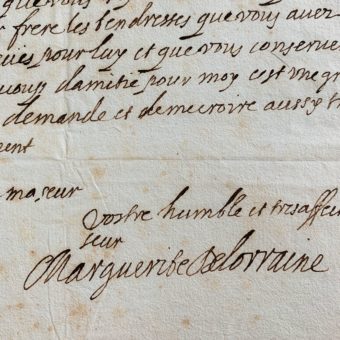 que vous
frere les tendresses que vous aves
eües pour luy et que vous conserues
coup damitié pour moy cest vne gr
demande et de me croire aussy t
ment
ma seur
vostre humble et tres affec
seur
Marguerite De lorraine